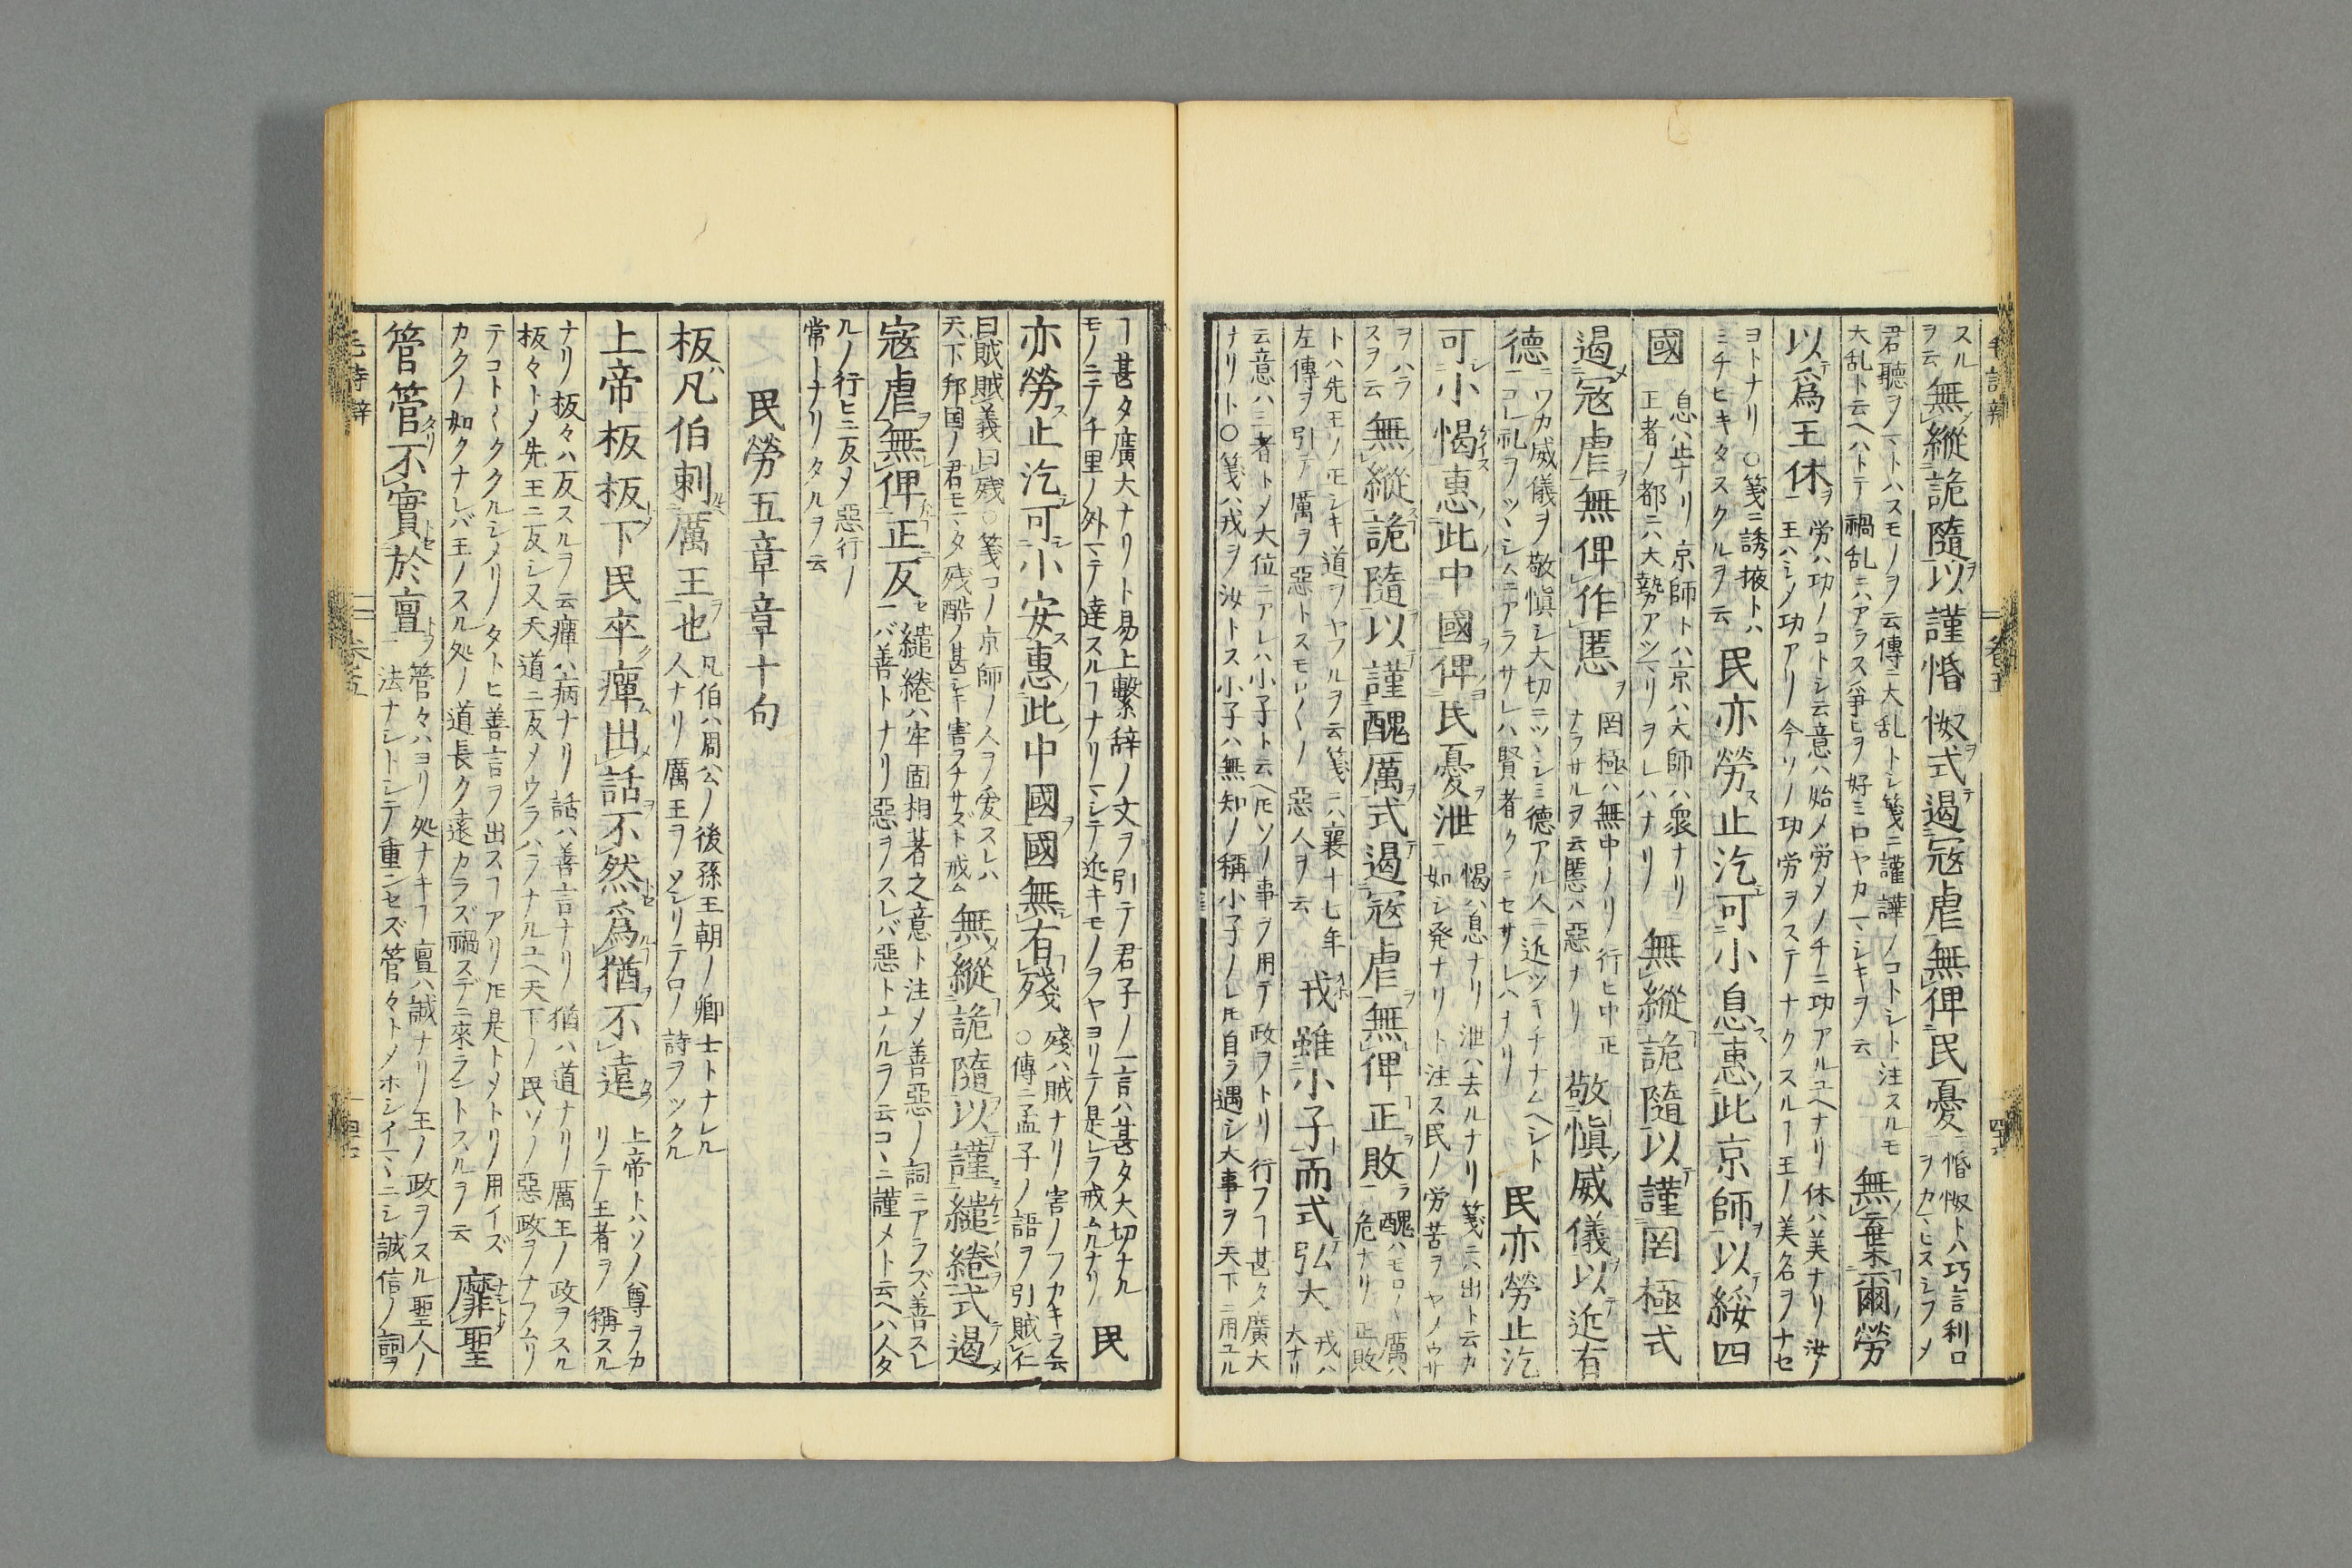 スル
ヲ云
無縱詭隨以謹惛怓式遏寇虐無俾民憂
惛怓トハ巧言利口
君聽ヲ
大乱ト云ヘハトテ禍乱ニハアラス爭ヒヲ好ミロヤカマシキヲ云
無棄爾勞
以爲王休
労ハ功ノコトシ云意ハ始メ労メノチニ功アルユヘナリ休ハ美ナリ汝ノ
王ハシメ功アリ今ソノ功労ヲステナクスルヿ王ノ美名ヲナセ
ヨトナリ○箋ニ誘掖トハ
ミチヒキタスクルヲ云
民亦勞止汔可小息惠此京師以綏四
國
息ハ止ナリ京師トハ京ハ大師ハ衆ナリ
王者ノ都ニハ大勢アツマリヲレハナリ
無縱詭隨以謹罔極式
遏寇虐無俾作慝
罔極ハ無中ノリ行ヒ中正
ナラサルヲ云慝ハ惡ナリ
敬愼威儀以近有
德
ワカ威儀ヲ敬愼シ大切ニツヽシミ德アル人ニ近ツキチナムヘシト
民亦勞止汔
可小愒惠此中國俾民憂泄
愒ハ息ナリ泄ハ去ルナリ箋ニハ出ト云カ
如シ発ナリト注ス民ノ労苦ヲヤノウサ
ヲハラ
スヲ云
無縱詭隨以謹醜厲式遏寇虐無俾正敗
醜ハモロ〱厲ハ
危ナリ正敗
トハ先王ノモシキ道ヲヤフルヲ云箋ニハ襄十七年
左傳ヲ引テ厲ヲ惡トスモロ〱ノ惡人ヲ云
戎雖小子而式弘大
戎ハ
大ナリ
云意ハ三者トメ大位ニアレハ小子ト云ヘ𪜈ソノ事ヲ用テ政ヲトリ行フヿ甚タ廣大
ナリト○箋ハ戎ヲ汝トス小子ハ無知ノ稱小子ノレ𪜈自ラ遇シ大事ヲ天下ニ用ユル
ヿ甚タ廣大ナリト易上繋辞ノ文ヲ引テ君子ノ一言ハ甚タ大切ナル
モノニテ千里ノ外マテ達スルヿナリマシテ近キモノヲヤヨリテ是レヲ戒ムルナリ
民
亦勞止汔可小安惠此中國國無有殘
殘ハ賊ナリ害ノフカキヲ云
○傳ニ孟子ノ語ヲ引賊仁
曰賊賊義曰残○箋コノ京師ノ人ヲ愛スレハ
天下邦国ノ君モマタ残酷ノ甚シキ害ヲナサズト戒ム
無縱詭隨以謹繾綣式遏
寇虐無俾正反
繾綣ハ牢固相著之意ト注メ善惡ノ詞ニアラズ善スレ
バ善トナリ惡ヲスレバ惡トナルヲ云コヽニ謹メト云ヘハ人タ
ルノ行ヒニ反メ惡行ノ
常トナリタルヲ云
民勞五章章十句
板凡伯刺厲王也
凡伯ハ周公ノ後孫王朝ノ卿士トナレル
人ナリ厲王ヲソシリテコノ詩ヲツクル
上帝板板下民卒癉出話不然爲猶不遠
上帝トハソノ尊ヲカ
リテ王者ヲ稱スル
ナリ板々ハ反スルヲ云癉ハ病ナリ話ハ善言ナリ猶ハ道ナリ厲王ノ政ヲスル
板々トメ先王ニ反シ又天道ニ反メウラハラナルユヘ天下ノ民ソノ惡政ヲナフムリ
テコト〱ククルシメリノタトヒ善言ヲ出スヿアリノ𪜈是トメトリ用イズ
カクノ如クナレバ王ノスル処ノ道長ク遠カラズ禍スデニ來ラントスルヲ云
靡聖
管管不實於亶
管々ハヨリ処ナキヿ亶ハ誠ナリノ王ノ政ヲスル聖人ノ
法ナシトシテ重ンセズ管々トメホシイマヽニシ誠信ノ詞ヲ